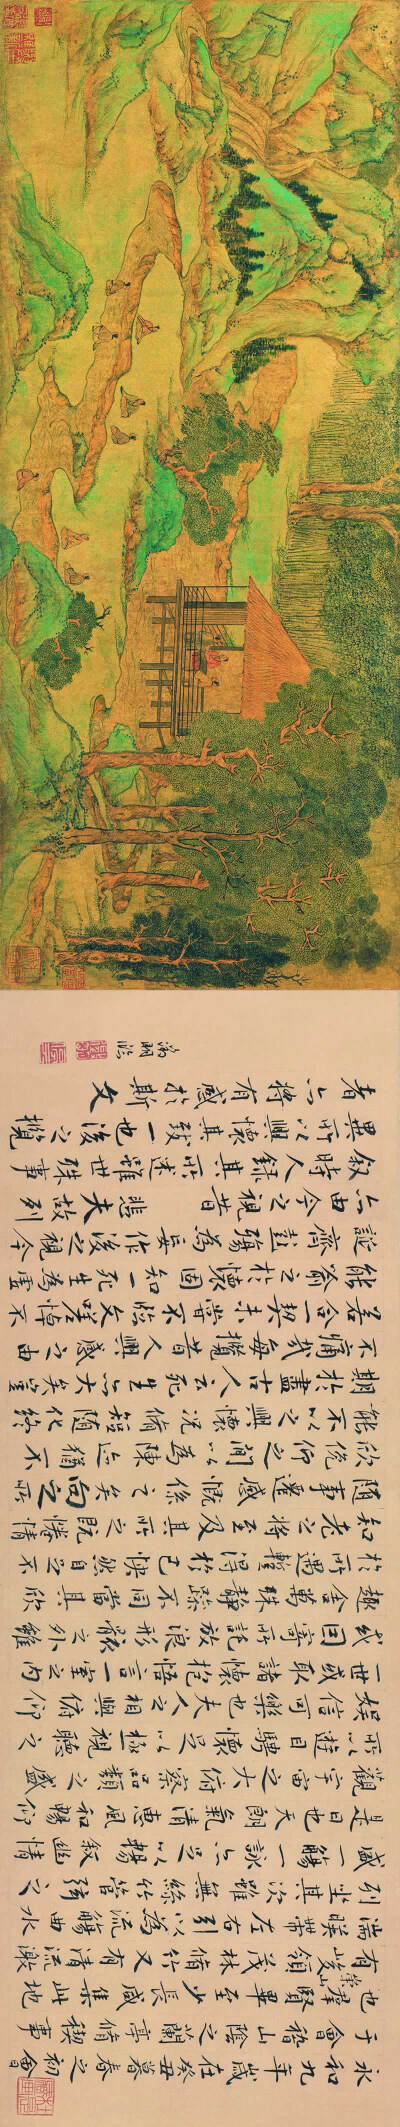 永和九年歲在癸丑暮春之初會
于會稽山陰之蘭亭脩禊事
也群賢畢至少長咸集此地
有崇山峻領茂林脩竹又有清流激
湍暎帶左右引以為流觴曲水
列坐其次雖無絲竹管弦之
盛一觴一詠亦足以暢敘幽情
是日也天朗氣清惠風和暢仰
觀宇宙之大俯察品類之盛
所以遊目騁懷足以極視聽之
娛信可樂也夫人之相與俯仰
一世或取諸懷抱悟言一室之內
或因寄所託放浪形骸之外雖
趣舍萬殊靜躁不同當其欣
於所遇暫得於己快然自足不
知老之將至及其所之既惓情
隨事遷感慨係之矣向之所
欣俛仰之間以為陳迹猶不
能不以之興懷況脩短隨化終
期於盡古人云死生亦大矣豈
不痛哉每攬昔人興感之由
若合一契未嘗不臨文嗟悼不
能喻之於懷固知一死生為虛
誕齊彭殤為妄作後之視今
亦由今之視昔悲夫故列
敘時人錄其所述雖世殊事
異所以興懷其致一也後之攬
者亦將有感於斯文
徵明臨